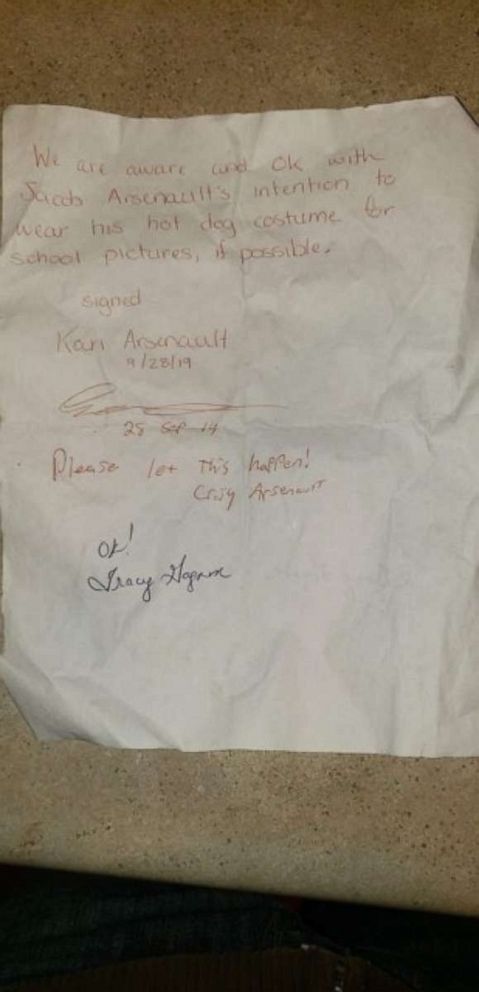 We are aware and Ok with
Jacob Arsenault's intention to
wear his hot dog costume for
school pictures, if possible.
signed
Kari Arsenault
9/28/19
28 Sep 19
Please let this happen!
Craig Arsenault
OK!
Tracy